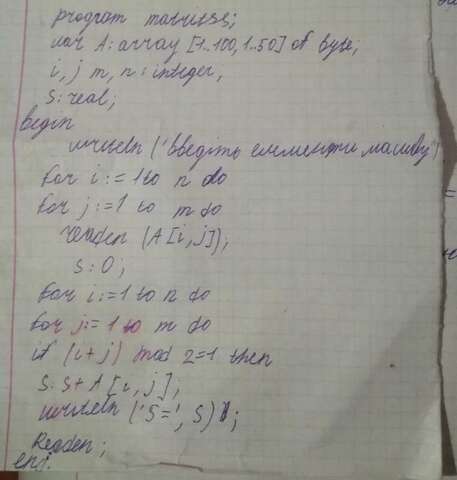 program matritss;
var A: array [1..100,1..50] of byte;
i, j m, n: integer,
s: real;
begin
writeln ('Введіть елементи масиву')
for i:=1 to n do
for j:=1 to m do
readen (A[i,j]);
s:0;
for i:=1 to n do
for j:=1 to m do
if (i+j) mod 2=1 then
s:s+A [i,j];
writeln ('S=', S);
Readen;
end.